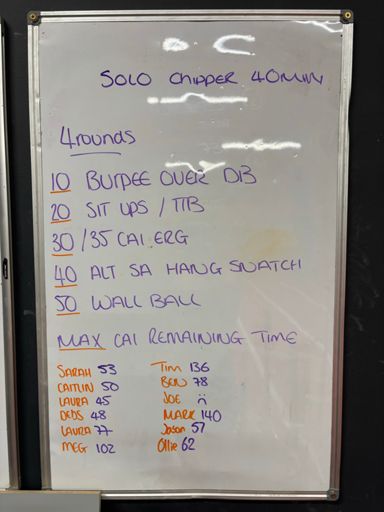 SOLO CHIPPER 40MIN
4 rounds
10 BURPEE OVER DB
20 SIT UPS / TTB
30 / 35 CAL ERG
40 ALT SA HANG SNATCH
50 WALL BALL
MAX CAL REMAINING TIME
SARAH 53
CAITLIN 50
LAURA 45
DEDS 48
LAURA 77
MEG 102
Tim 136
BEN 78
JOE :(
MARK 140
Jason 57
Ollie 62